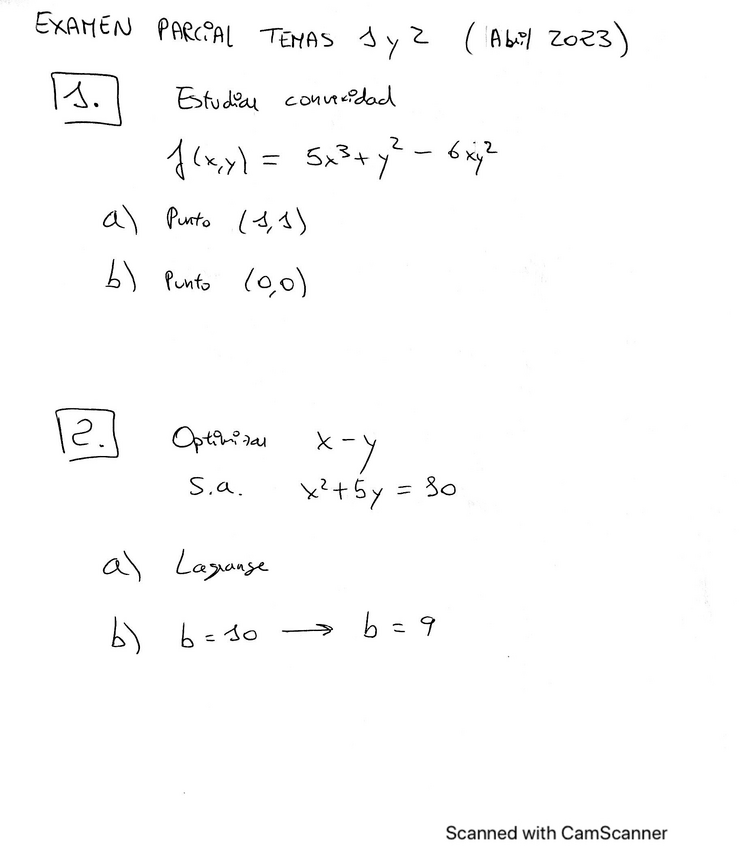 EXAMEN PARCIAL TEMAS 1 y 2 (Abril 2023)
1. Estudiar convexidad
f(x,y) = 5x³ + y² - 6xy²
a) Punto (1,1)
b) Punto (0,0)
2. Optimizar x - y
S.a. x² + 5y = 10
a) Lagrange
b) b = 10 → b = 9
Scanned with CamScanner